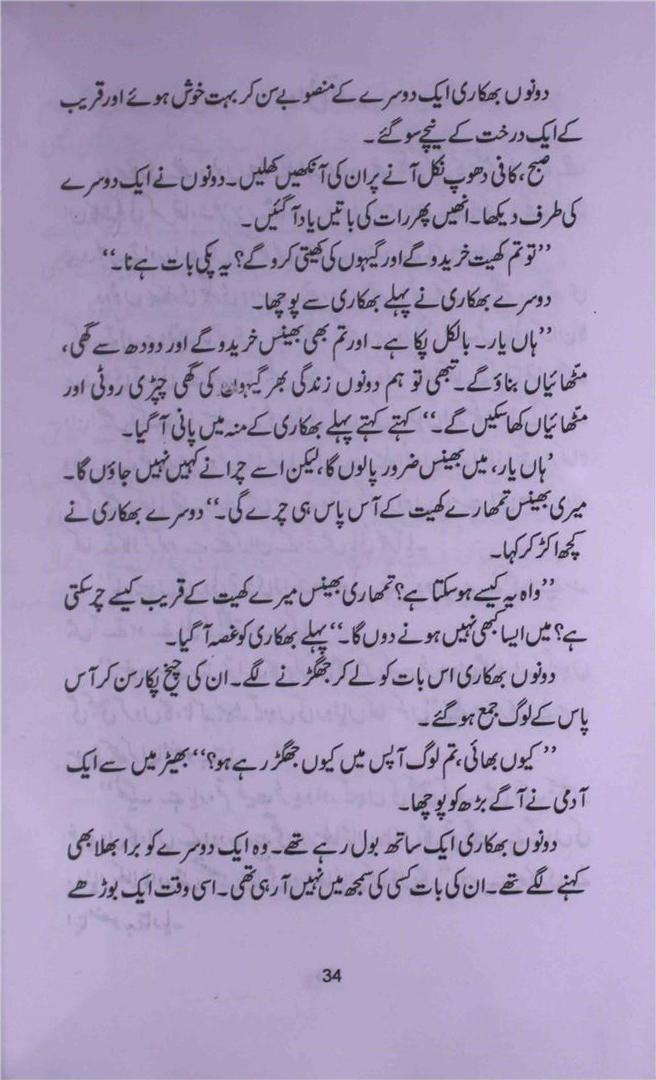 دونوں بھکاری ایک دوسرے کے منصوبے سن کر بہت خوش ہوئے اور قریب
کے ایک درخت کے نیچے سو گئے۔
صبح، کافی دھوپ نکل آنے پر ان کی آنکھیں کھلیں۔ دونوں نے ایک دوسرے
کی طرف دیکھا۔ انھیں پھر رات کی باتیں یاد آ گئیں۔
’’تو تم کھیت خریدو گے اور گیہوں کی کھیتی کرو گے؟ یہ پکی بات ہے نا۔‘‘
دوسرے بھکاری نے پہلے بھکاری سے پوچھا۔
’’ہاں یار۔ بالکل پکا ہے۔ اور تم بھی بھینس خریدو گے اور دودھ سے گھی،
مٹھائیاں بناؤ گے۔ تبھی تو ہم دونوں زندگی بھر گیہوں کی گھی چپڑی روٹی اور
مٹھائیاں کھا سکیں گے۔‘‘ کہتے کہتے پہلے بھکاری کے منہ میں پانی آ گیا۔
’ہاں یار، میں بھینس ضرور پالوں گا، لیکن اسے چرانے کہیں نہیں جاؤں گا۔
میری بھینس تمھارے کھیت کے آس پاس ہی چرے گی۔‘‘ دوسرے بھکاری نے
کچھ اکڑ کر کہا۔
’’واہ یہ کیسے ہو سکتا ہے؟ تمھاری بھینس میرے کھیت کے قریب کیسے چر سکتی
ہے؟ میں ایسا کبھی نہیں ہونے دوں گا۔‘‘ پہلے بھکاری کو غصہ آ گیا۔
دونوں بھکاری اس بات کو لے کر جھگڑنے لگے۔ ان کی چیخ پکار سن کر آس
پاس کے لوگ جمع ہو گئے۔
’’کیوں بھائی، تم لوگ آپس میں کیوں جھگڑ رہے ہو؟‘‘ بھیڑ میں سے ایک
آدمی نے آگے بڑھ کو پوچھا۔
دونوں بھکاری ایک ساتھ بول رہے تھے۔ وہ ایک دوسرے کو برا بھلا بھی
کہنے لگے تھے۔ ان کی بات کسی کی سمجھ میں نہیں آ رہی تھی۔ اسی وقت ایک بوڑھے
34